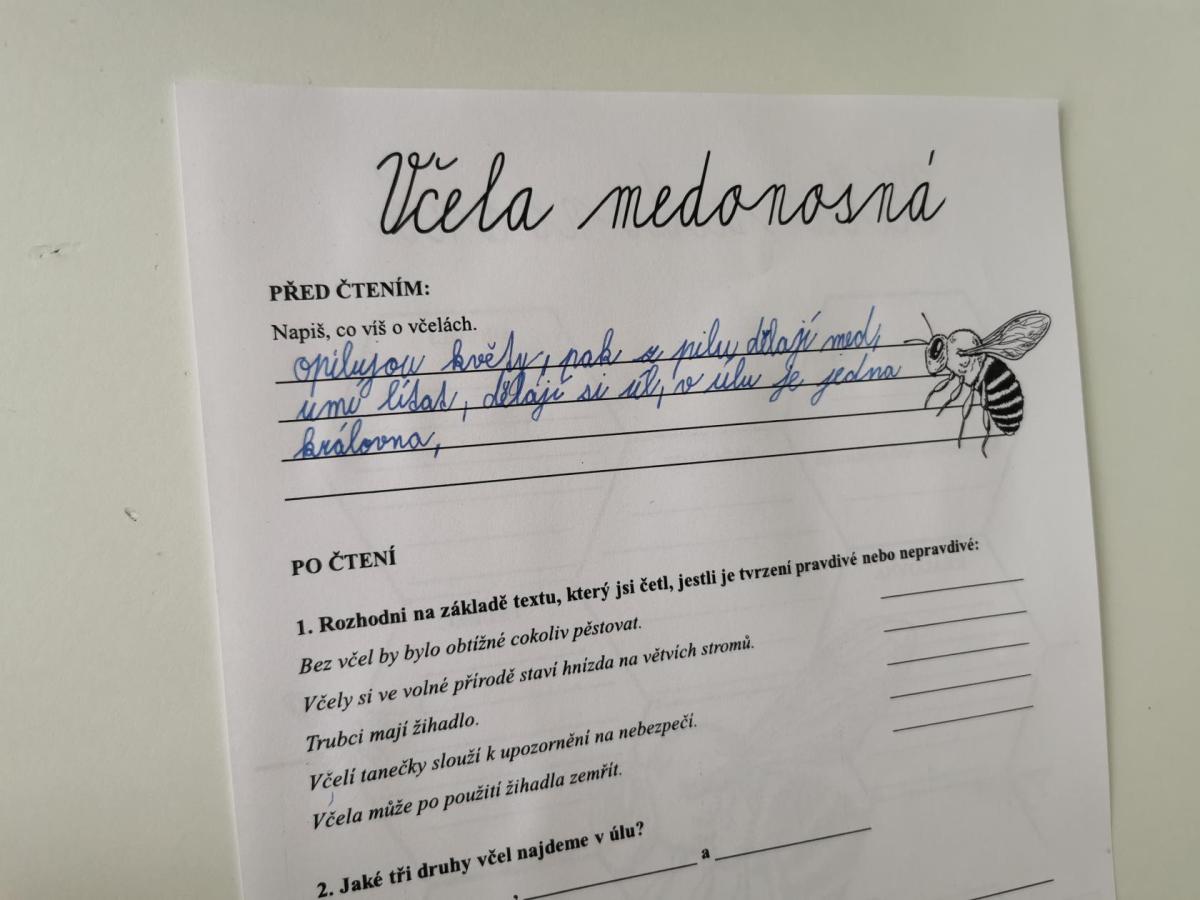 Včela medonosná
PŘED ČTENÍM:
Napiš, co víš o včelách.
opilujou květy, pak z pilu dělají med,
umí lítat, dělájí si úl, v úlu je jedna
královna,
PO ČTENÍ
1. Rozhodni na základě textu, který jsi četl, jestli je tvrzení pravdivé nebo nepravdivé:
Bez včel by bylo obtížné cokoliv pěstovat.
Včely si ve volné přírodě staví hnízda na větvích stromů.
Trubci mají žihadlo.
Včelí tanečky slouží k upozornění na nebezpečí.
Včela může po použití žihadla zemřít.
2. Jaké tři druhy včel najdeme v úlu?
, a